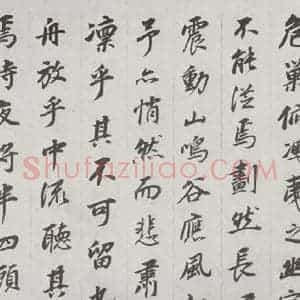 危巢俯馮夷之幽
不能從焉劃然長
震動山鳴谷應風
予亦悄然而悲肅
凜乎其不可留也
舟放乎中流聽其
焉時夜將半四顧
Shufaziliao.com